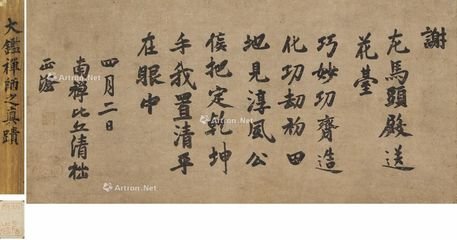 謝
左馬頭殿送
花臺
巧妙功齊造
化功劫初田
地見淳風公
侯把定乾坤
手我置清平
在眼中
四月二日
南禪比丘清拙
正澄
大鑑禪師之真蹟
Artron.Net
Artron.Net
Artron.Net
Artron.Net